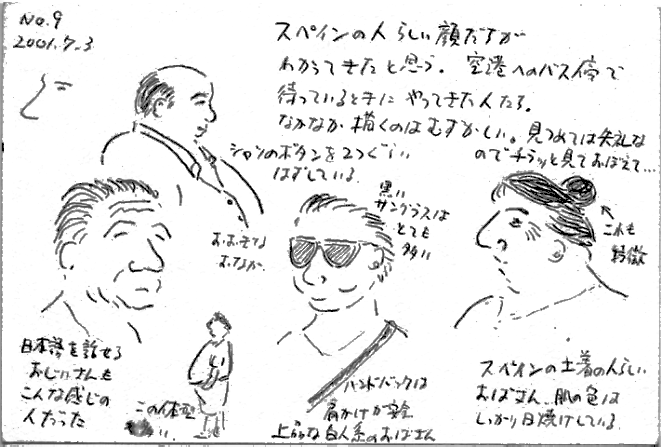 No.9
2001.7.3
スペインの人らしい顔だちが
わかってきたと思う。空港へのバス停で
待っているときにやってきた人たち。
なかなか描くのはむずかしい。見つめては失礼な
のでチラッと見ておぼえて…
シャツのボタンを2つぐらい
はずしている
おおきな
おなか
黒い
サングラスは
とても
多い
これも
特徴
日本語を話せる
おじいさんも
こんな感じの
人だった
この体型
ハンドバックは
肩かけが安全
上品な白人系のおばさん
スペインの土着の人らしい
おばさん 肌の色は
しっかり日焼けしている